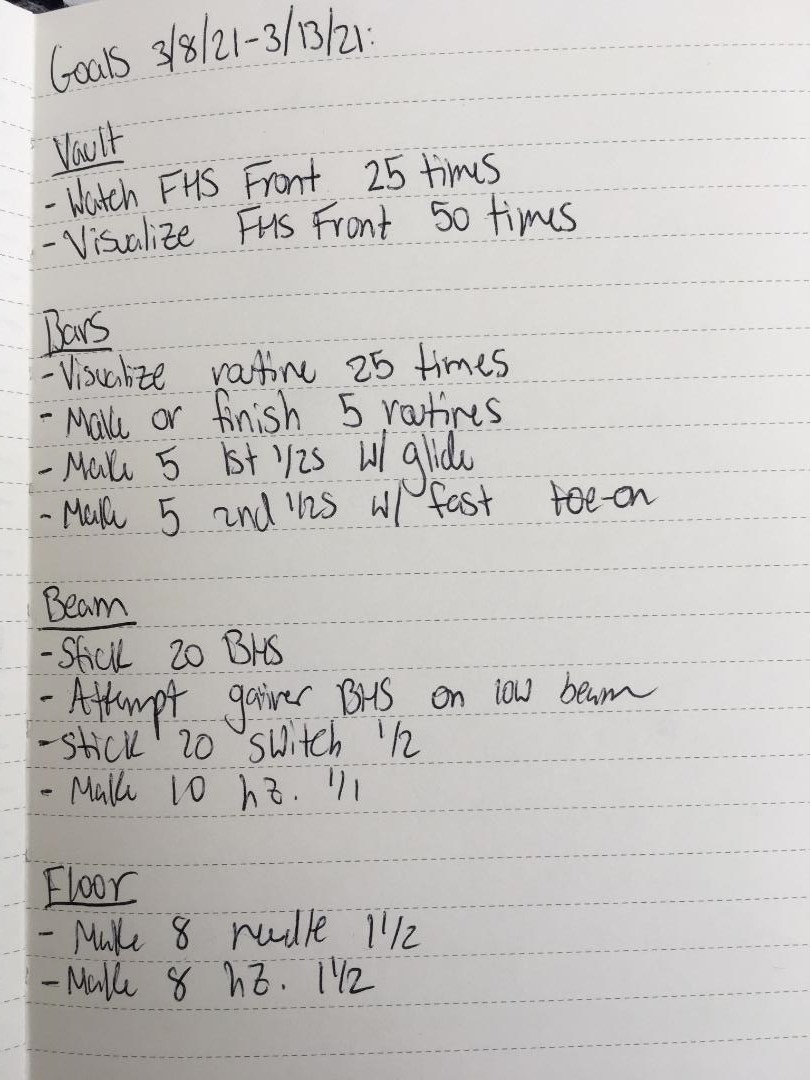 Goals 3/8/21-3/13/21:
Vault
- Watch FHS Front 25 times
- Visualize FHS Front 50 times
Bars
- Visualize routine 25 times
- Make or finish 5 routines
- Make 5 1st 1/2s w/ glide
- Make 5 2nd 1/2s w/ fast toe-on
Beam
- Stick 20 BHS
- Attempt gainer BHS on low beam
- Stick 20 switch 1/2
- Make 10 hz. 1/1
Floor
- Make 8 needle 1 1/2
- Make 8 hz. 1 1/2